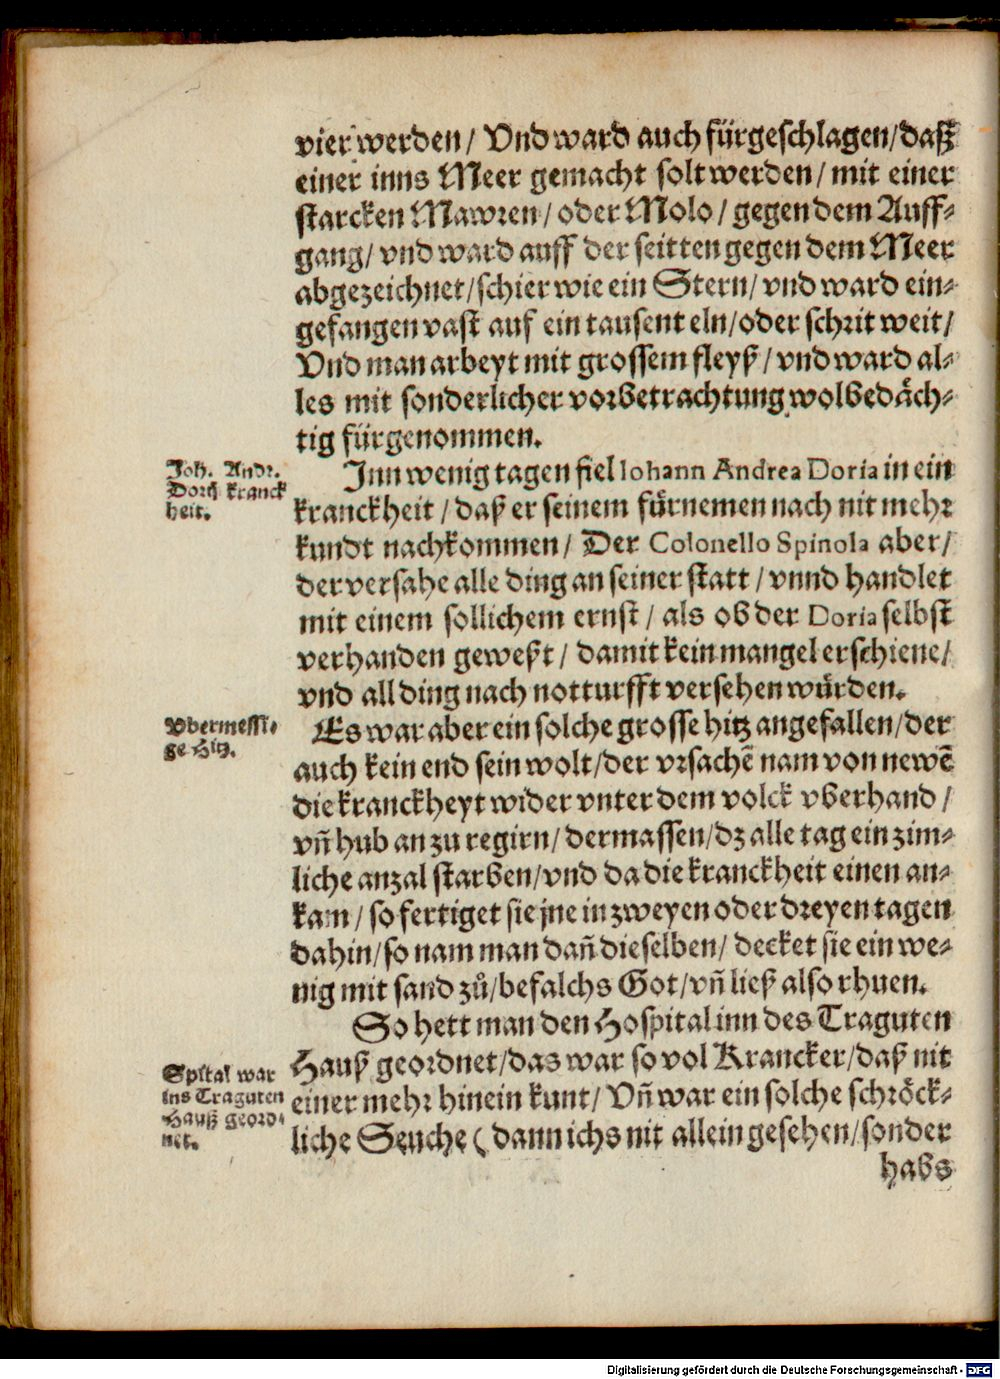 vier werden / Vnd ward auch fürgeschlagen / daß
einer inns Meer gemacht solt werden / mit einer
starcken Mawren / oder Molo / gegen dem Auff-
gang / vnd ward auff der seitten gegen dem Meer
abgezeichnet / schier wie ein Stern / vnd ward ein-
gefangen vast auf ein tausent eln / oder schrit weit /
Vnd man arbeyt mit grossem fleyß / vnd ward al-
les mit sonderlicher vorbetrachtung wolbedåch-
tig fürgenommen.
Joh. Andr.
Dorij kranck
heit.
Inn wenig tagen fiel Iohann Andrea Doria in ein
kranckheit / daß er seinem fürnemen nach nit mehr
kundt nachkommen / Der Colonello Spinola aber /
der versahe alle ding an seiner statt / vnnd handlet
mit einem sollichem ernst / als ob der Doria selbst
verhanden geweßt / damit kein mangel erschiene /
vnd all ding nach notturfft versehen würden.
Vbermessi-
ge Hitz.
Es war aber ein solche grosse hitz angefallen / der
auch kein end sein wolt / der vrsachē nam von newē
die kranckheyt wider vnter dem volck vberhand /
vñ hub an zu regirn / dermassen / dz alle tag ein zim-
liche anzal starben / vnd da die kranckheit einen an-
kam / so fertiget sie jne in zweyen oder dreyen tagen
dahin / so nam man dañ dieselben / decket sie ein we-
nig mit sand zů / befalchs Got / vñ ließ also rhuen.
So hett man den Hospital inn des Traguten
Spital war
ins Traguten
Hauß geord-
net.
Hauß geordnet / das war so vol Krancker / daß nit
einer mehr hinein kunt / Vñ war ein solche schröck-
liche Seuche ( dann ichs nit allein gesehen / sonder
habs
Digitalisierung gefördert durch die Deutsche Forschungsgemeinschaft - DFG